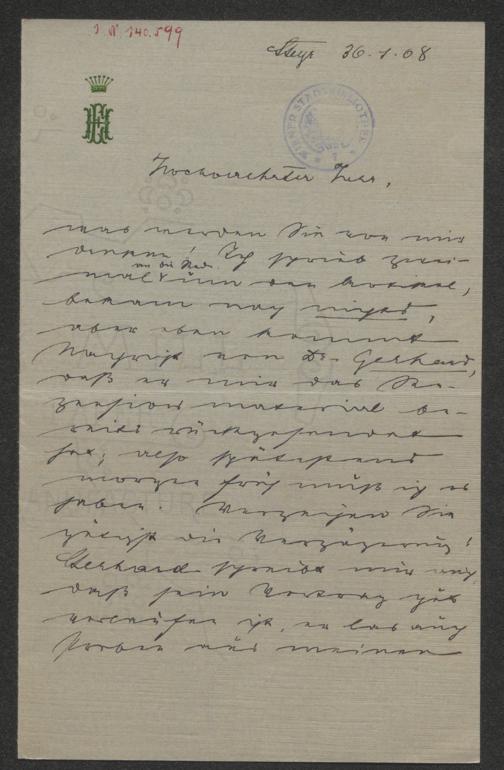 J. N. 140.599
Steyr 30-1-08
WIENER STADTBIBLIOTHEK
Hochverehrter Herr,
was werden Sie von mir
denken! Ich schrieb zwei-
mal an die Red. um den Artikel,
bekam noch nichts,
aber eben kommt
Nachricht von Dr. Gerhard,
daß er mir das Re-
zensionsmaterial be-
reits rückgesendet
hat; also spätestens
morgen früh muß ich es
haben. Verzeihen Sie
gütigst die Verzögerung!
Gerhard schreibt mir auch,
daß sein Vortrag gut
verlaufen ist, er las auch
Proben aus meinen